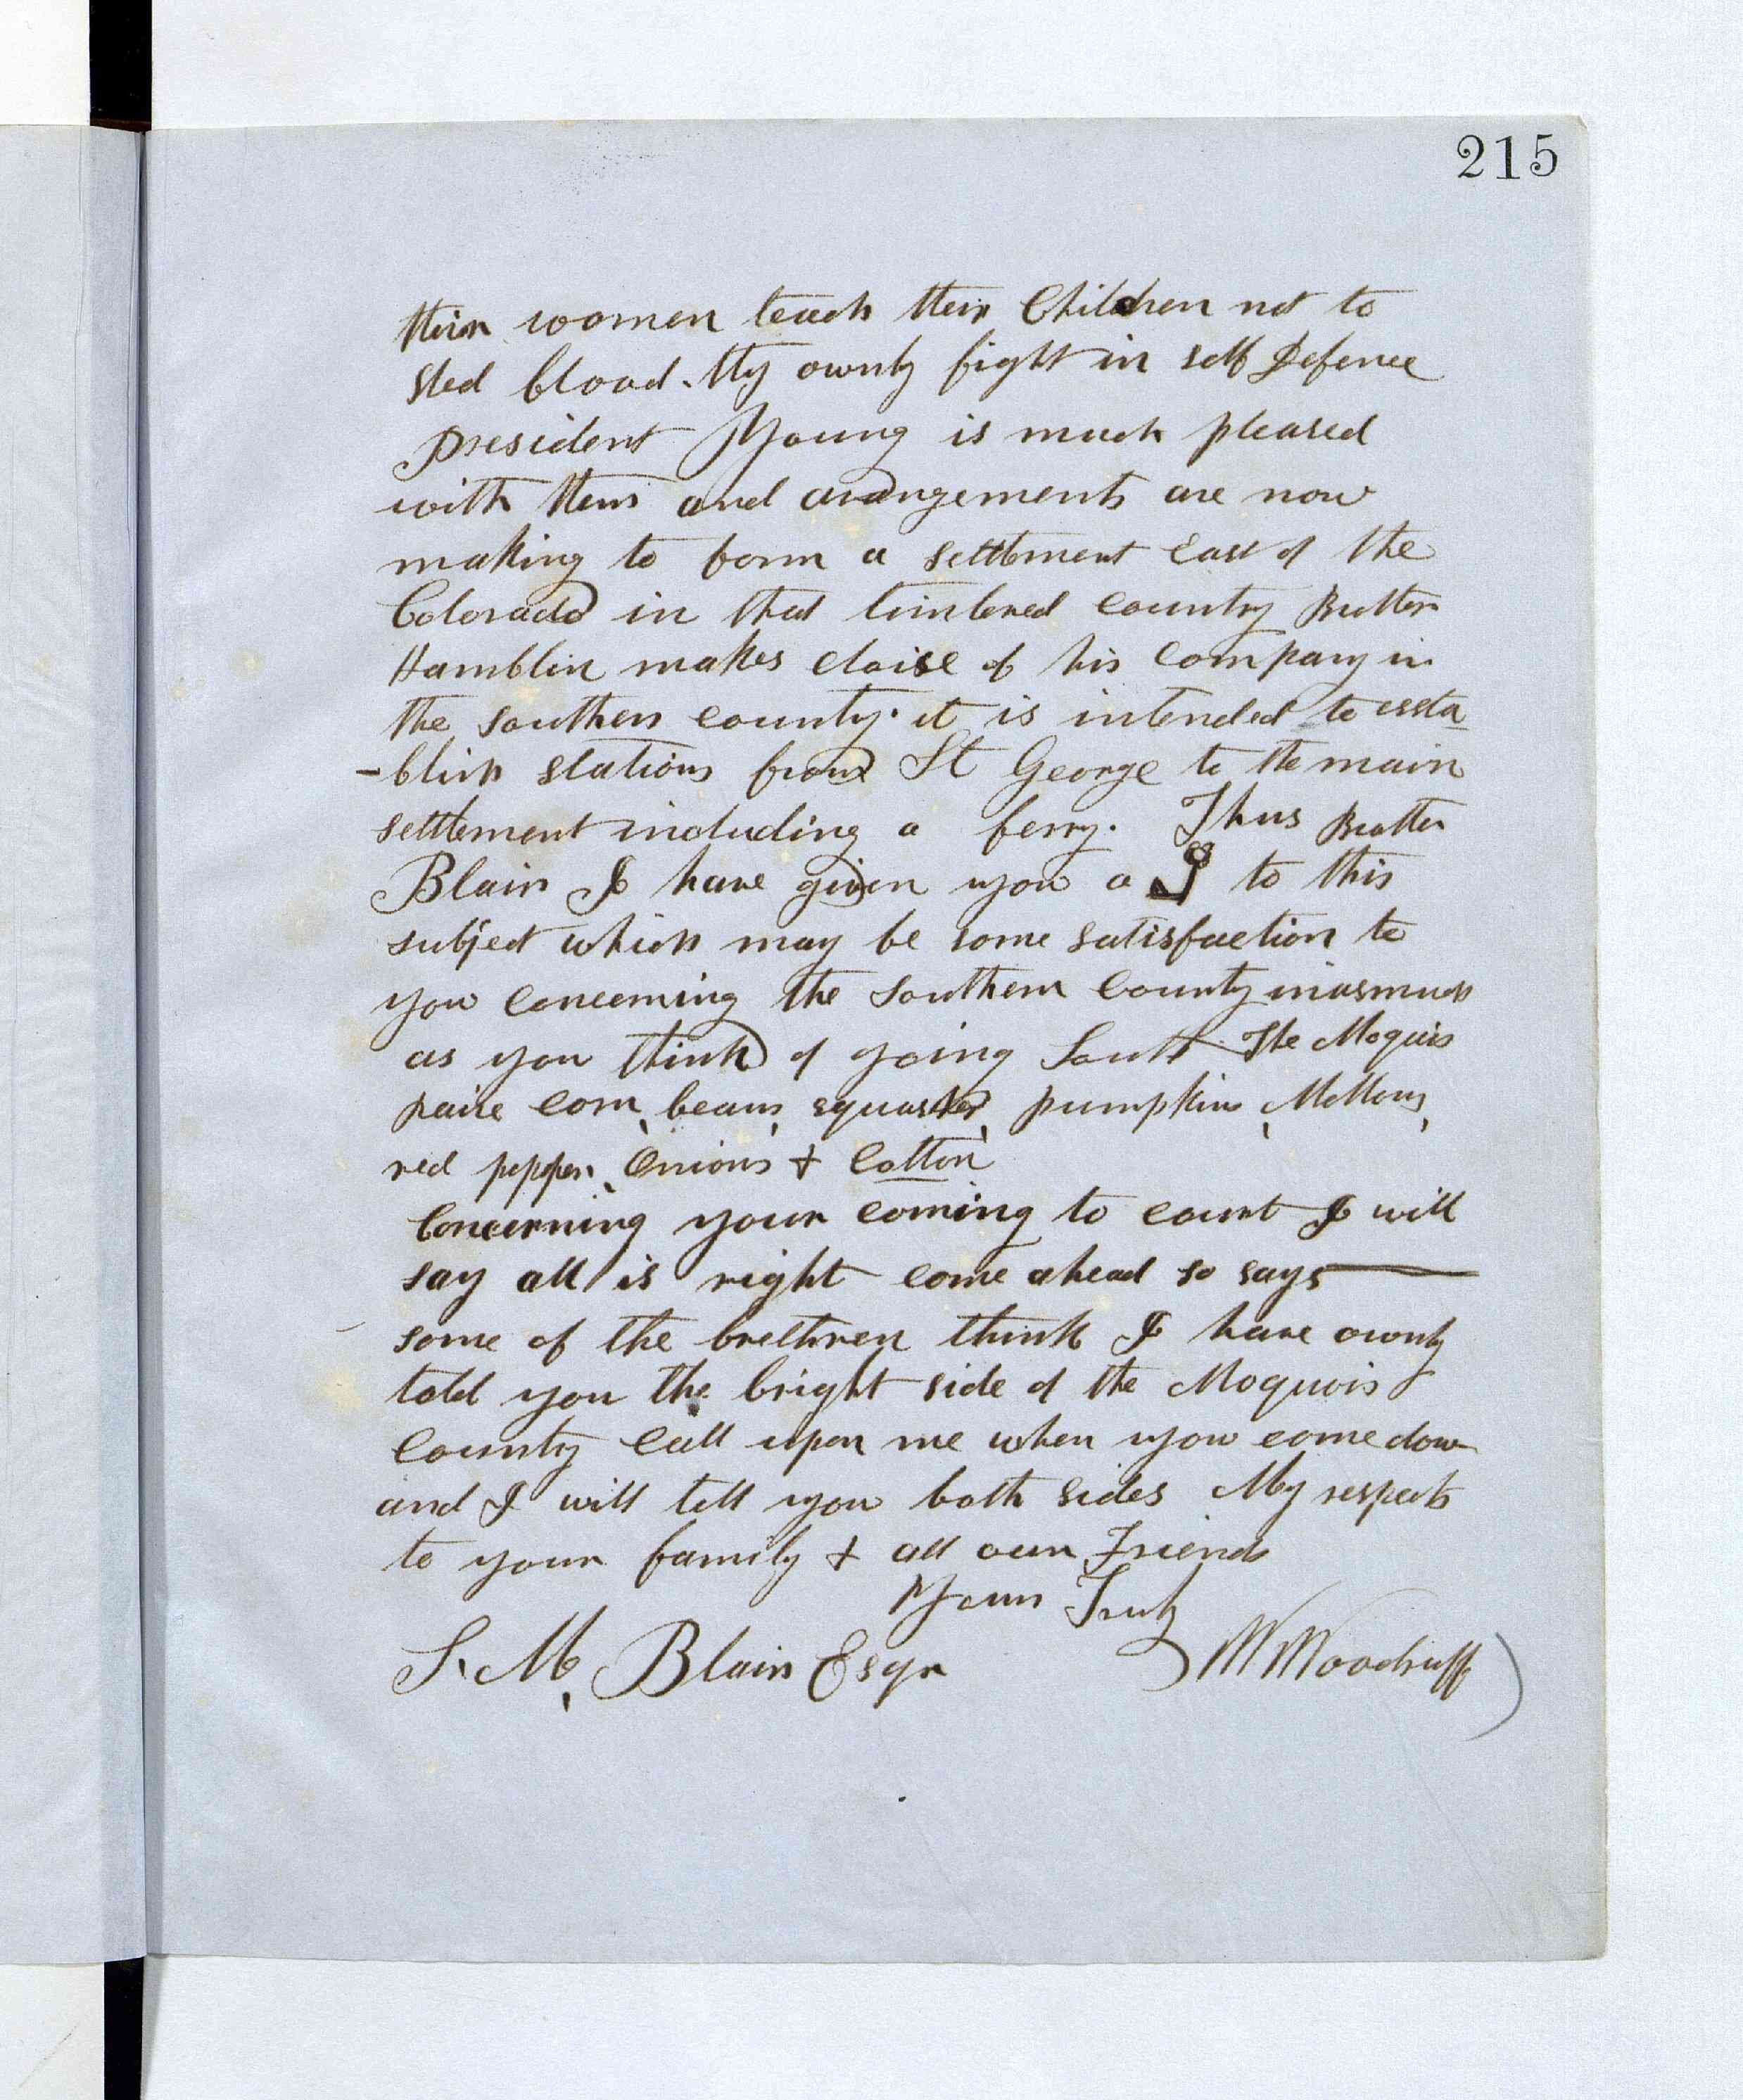 215
their women teach their Children not to
shed blood. they ownly fight in self Defence
President Young is much pleased
with them and arangements are now
making to form a settlement East of the
Colorado in that timbered country Brother
Hamblin makes choise of his company in
the southern county. it is intended to essta
-blish stations from St George to the main
settlement including a ferry. Thus Brother
Blair I have given you a to this
subject which may be some satisfaction to
you concerning the Southern County inasmuch
as you think of going South The Moquis
raise corn, beans, squashes, pumpkins, Mellons,
red pepper, Onions & Cotton
Concerning your coming to court I will
say all is right come ahead so says —
some of the brethren think I have ownly
told you the bright side of the Moquois
County Call upon me when you come down
and I will tell you both sides My respects
to your family & all our Friends
Yours Truly
S. M. Blair Esqr W Woodruff